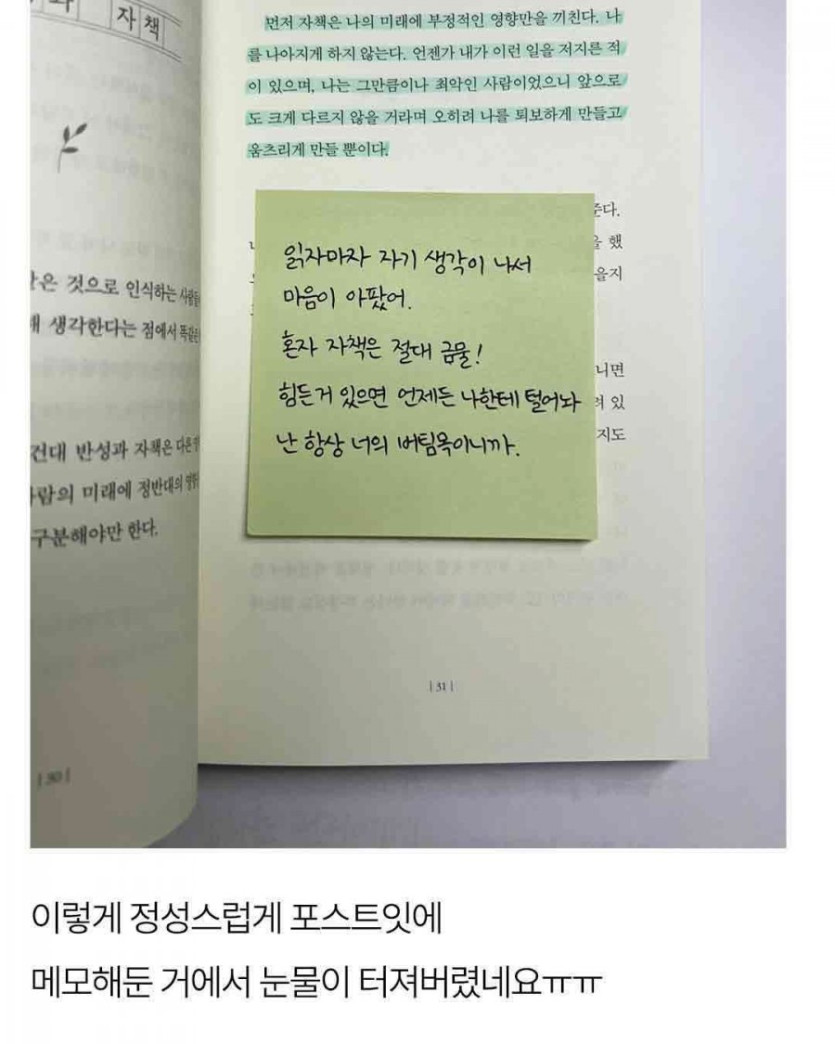 자 책
은 것으로 인식하는
생각한다는 점에서
건대 반성과 자책은 다른
람의 미래에 정반대의
구분해야만 한다.
먼저 자책은 나의 미래에 부정적인 영향만을 끼친다. 나
를 나아지게 하지 않는다. 언젠가 내가 이런 일을 저지른 적
이 있으며, 나는 그만큼이나 최악인 사람이었으니 앞으로
도 크게 다르지 않을 거라며 오히려 나를 퇴보하게 만들고
움츠리게 만들 뿐이다.
준다.
을 했
을지
니면
려 있
지도
읽자마자 자기 생각이 나서
마음이 아팠어.
혼자 자책은 절대 금물!
힘든거 있으면 언제든 나한테 털어놔
난 항상 너의 버팀목이니까.
| 31 |
이렇게 정성스럽게 포스트잇에
메모해둔 거에서 눈물이 터져버렸네요ㅠㅠ